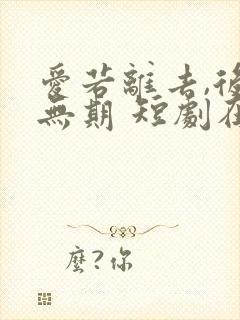 愛若離去,後
無期 短劇在
麼?你